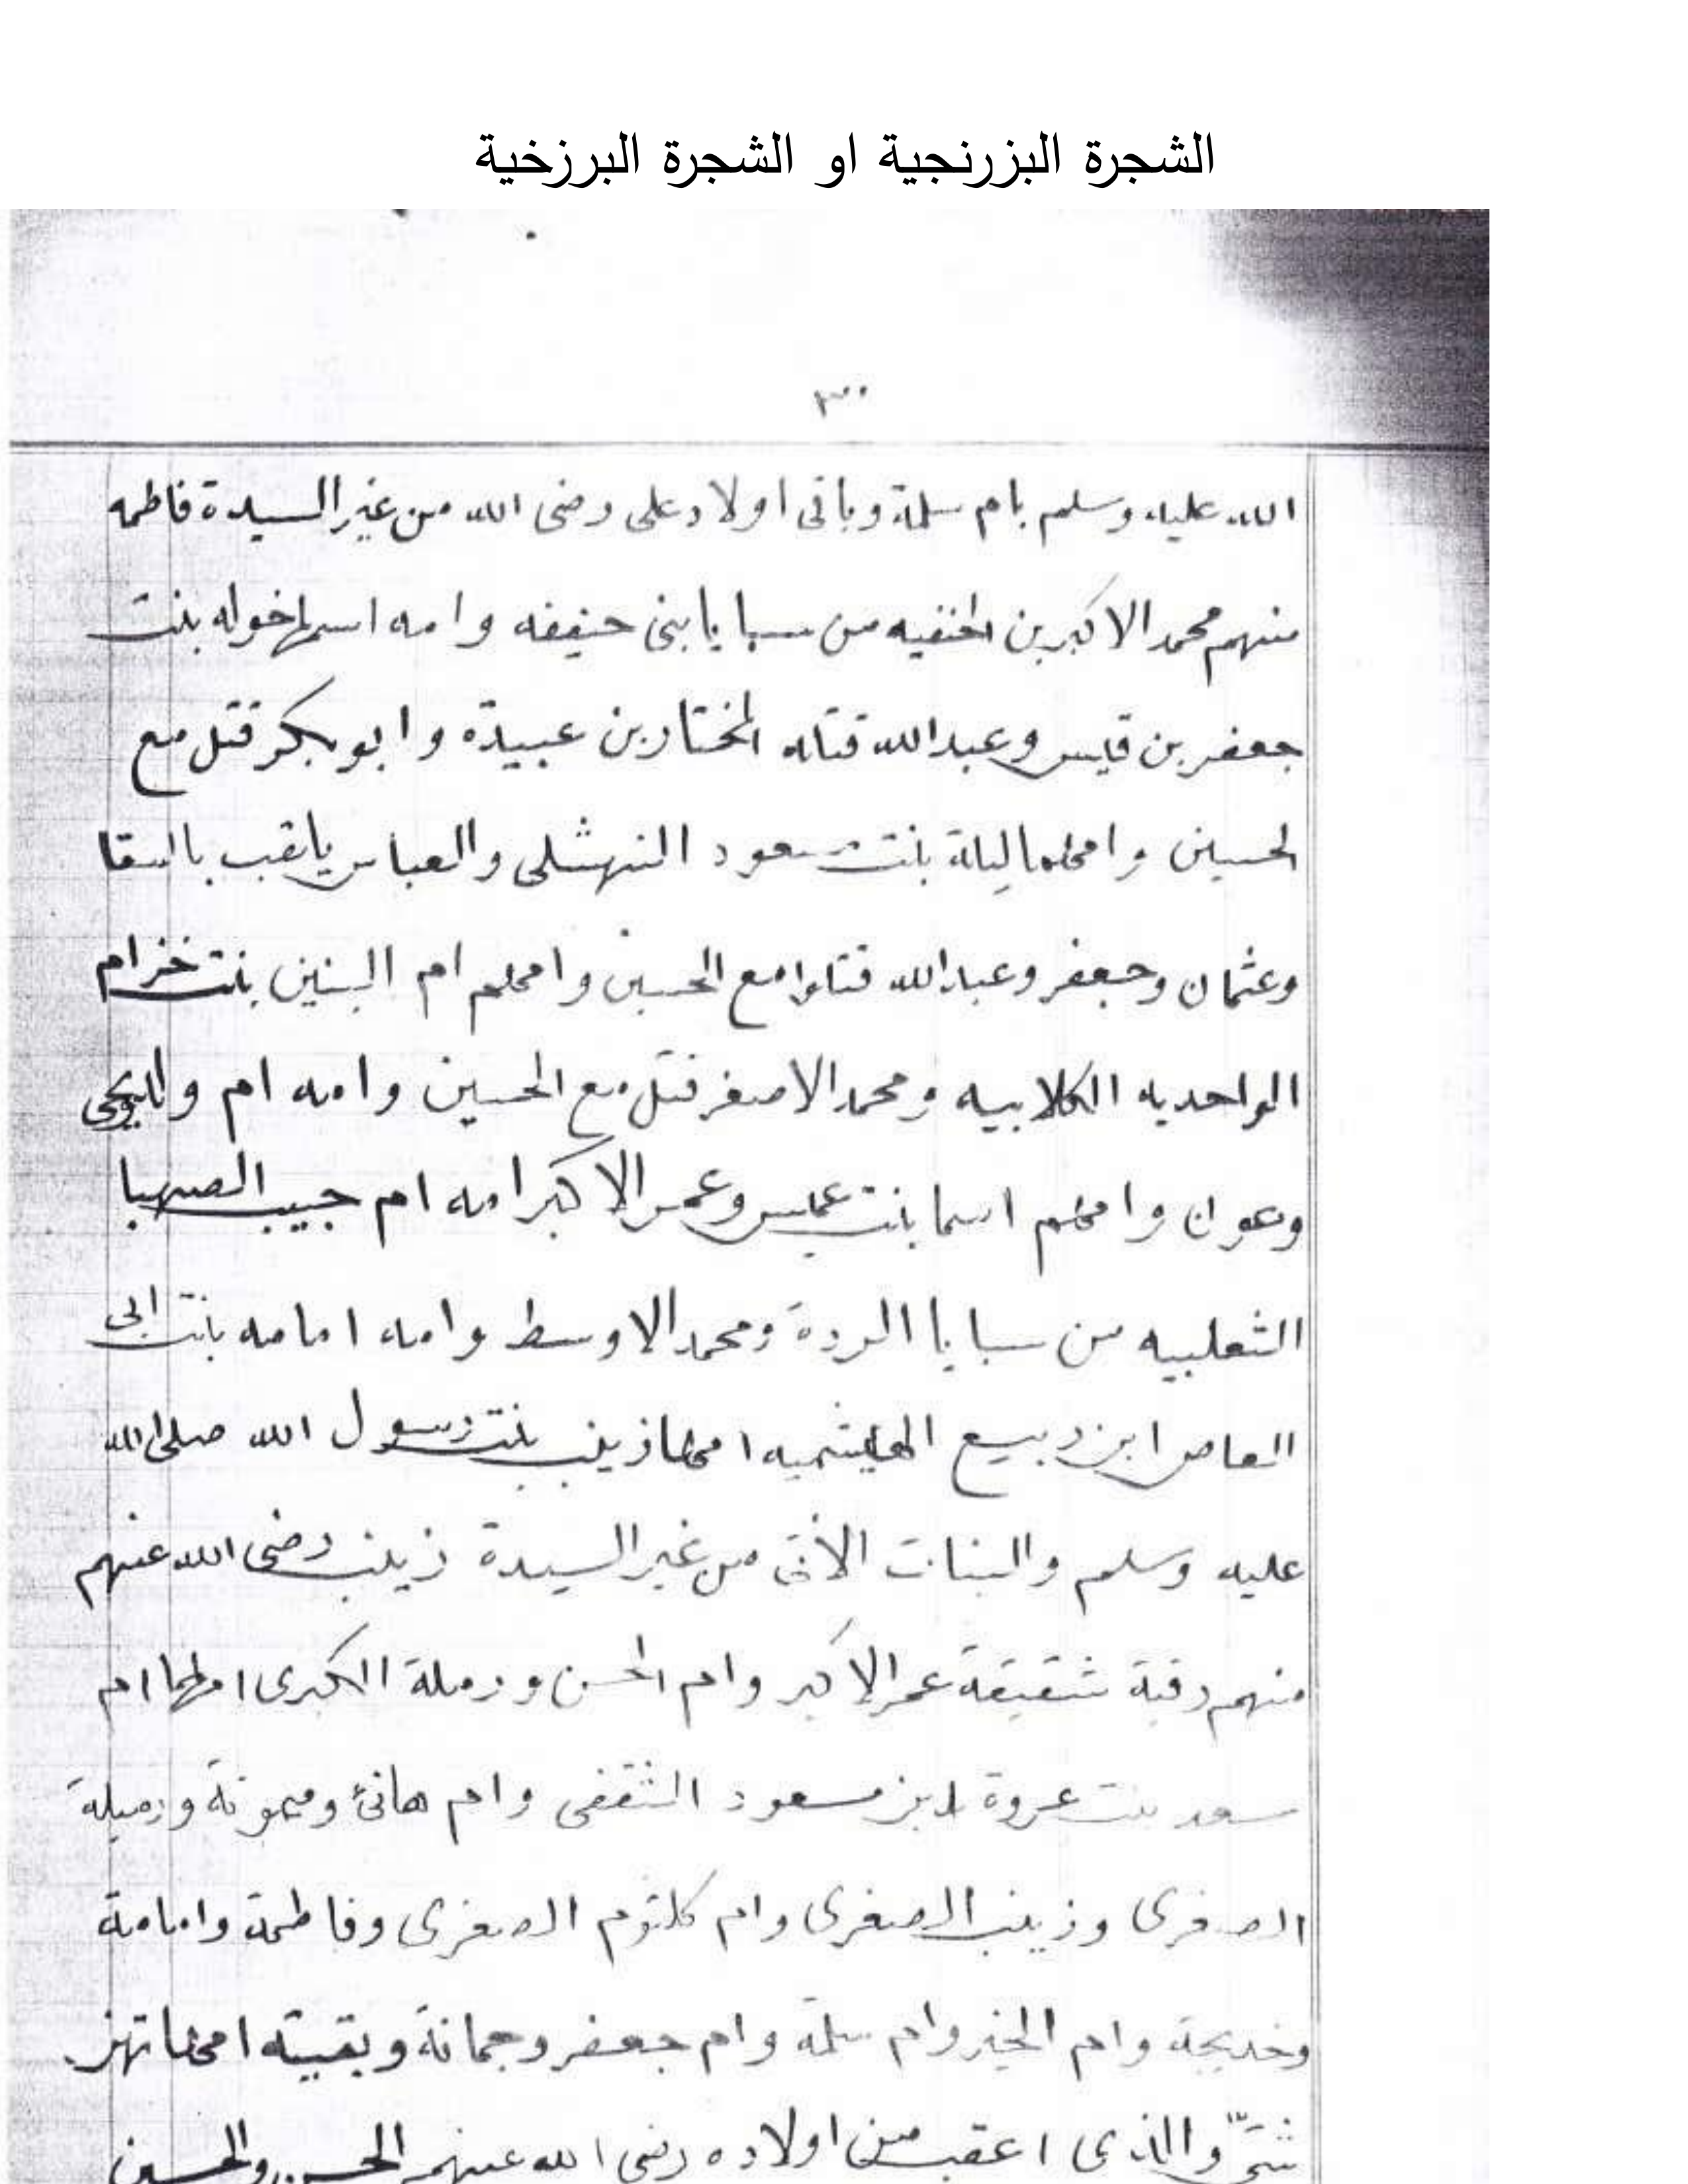 الشجرة البزرنجية او الشجرة البرزخية
٣٠٠
الله عليه وسلم بام سلمة وباقى اولاد على رضى الله من غير السيدة فاطمه
منهم محمد الاكبر بن الحنفيه من سبايا بنى حنيفه وامه اسمها خوله بنت
جعفر بن قيس وعبد الله قتله المختار بن عبيدة وابو بكر قتل مع
الحسين وامهما ليلة بنت مسعود النهشلى والعباس يلقب بالسقا
وعثمان وجعفر وعبد الله قتلوا مع الحسين وامهم ام البنين بنت خزام
الواحديه الكلابيه ومحمد الاصغر قتل مع الحسين وامه ام ولد ويحى
وعون وامهم اسما بنت عميس وعمر الاكبر امه ام حبيب الصهبا
الثعلبيه من سبايا الردة ومحمد الاوسط وامه امامه بنت ابى
العاص ابن ربيع امها زينب بنت رسول الله صلى الله
عليه وسلم والبنات من غير السيدة زينب رضى الله عنهم
منهم رقية شقيقة عمر الاكبر وام الحسن ورملة الكبرى امهما ام
سعد بنت عروة ابن مسعود الثقفى وام هانئ وميمونة ورميلة
الصغرى وزينب الصغرى وام كلثوم الصغرى وفاطمة وامامة
وخديجة وام الخير وام سلمة وام جعفر وجمانة وبقيته امهاتهن
شتى والذى اعقب من اولاده رضى الله عنهم الحسن والحسين